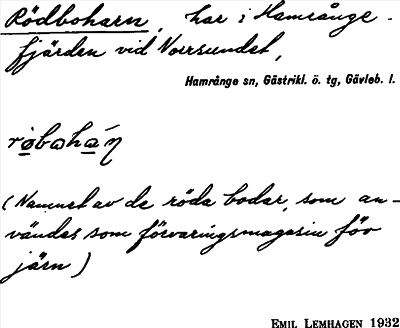 Rödboharn, har i Hamrånge-
fjärden vid Norrsundet,
Hamrånge sn, Gästrikl. ö. tg, Gävleb. l.
(Namnet av de röda bodar, som an-
vändes som förvaringsmagasin för
järn)
EMIL LEMHAGEN 1932